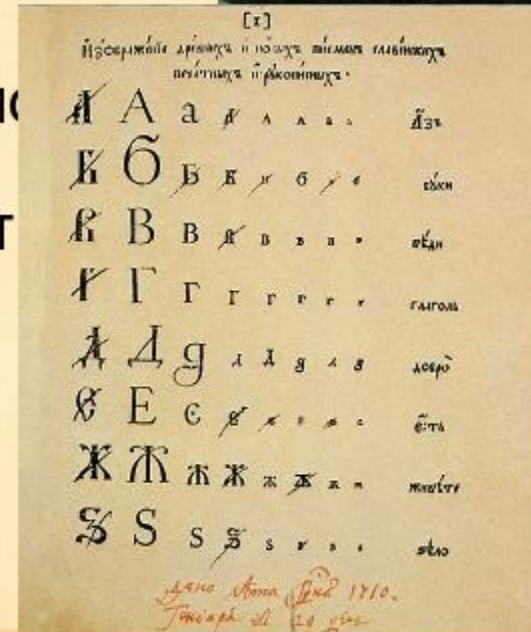 [1]
Изображенїе древнихъ и новыхъ писменъ славенскихъ
печатныхъ и рукописныхъ.
А А а А А А а а Азъ
Б Б Б Б б б б б буки
В В в В в в в в вѣди
Г Г г г г г г г глаголь
Д Д д д Д д д д добро
Е Е є е е е е е есть
Ж Ж ж ж ж ж ж ж живѣте
Ѕ Ѕ ѕ ѕ ѕ ѕ ѕ ѕ ѕѣло
Дано 1710.
Генваря